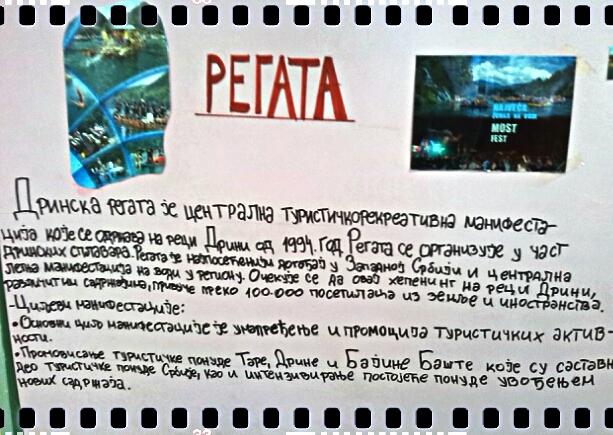 РЕГАТА
NAJVEĆA
ŽURKA NA VODI
MOST
FEST
Дринска регата је централна туристичкорекреативна манифеста-
ција које се одржава на реци Дрини од 1994. год. Регата се организује у част
дринских сплавара. Регата је најпосећенији догађај у Западној Србији и централна
летња манифестација на води у региону. Очекује се да овај хепенинг на реци Дрини,
различитим садржајима, привуче преко 100.000 посетилаца из земље и иностранства.
-Циљеви манифестације:
•Основни циљ манифестације је унапређење и промоција туристичких актив-
ности.
•Промовисање туристичке понуде Таре, Дрине и Бајине Баште које су саставни
део туристичке понуде Србије, као и интензивирање постојеће понуде увођењем
нових садржаја.